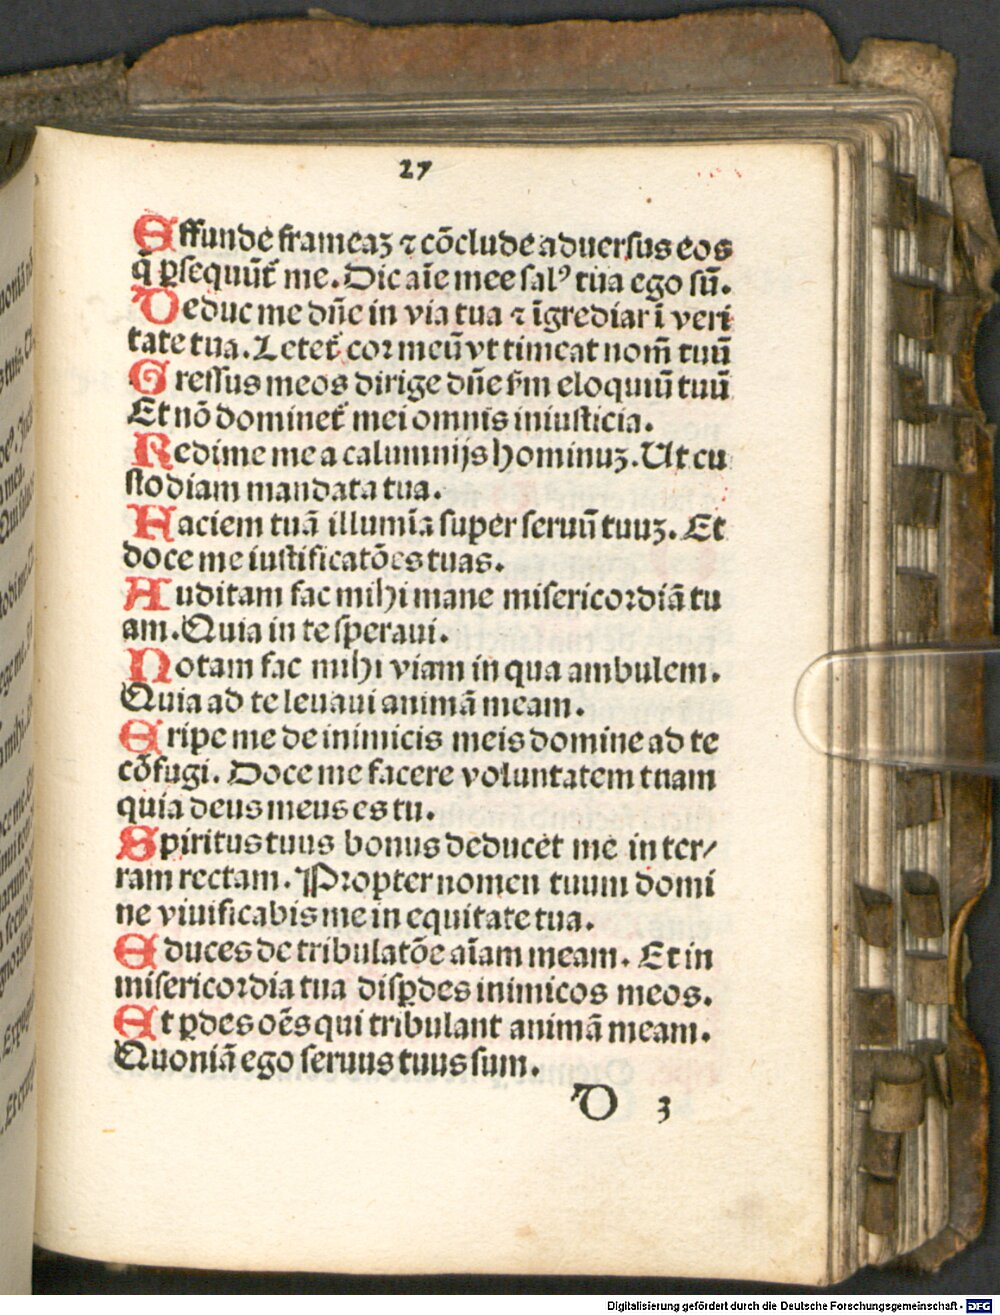 27
Effunde frameaꝫ ⁊ cōclude aduersus eos
q̄ ꝑsequūt̄ me. Dic aīe mee salꝰ tua ego sū.
Deduc me dn̄e in via tua ⁊ īgrediar ī veri
tate tua. Letet̄ cor meū vt timeat nom̄ tuū
Gressus meos dirige dn̄e ẜm eloquiū tuū
Et nō dominet̄ mei omnis iniusticia.
Redime me a calumnijs hominuꝫ. Ut cu
stodiam mandata tua.
Haciem tuā illumīa super seruū tuuꝫ. Et
doce me iustificatōes tuas.
Auditam fac mihi mane misericordiā tu
am. Quia in te speraui.
Notam fac mihi viam in qua ambulem.
Quia ad te leuaui animā meam.
Eripe me de inimicis meis domine ad te
cōfugi. Doce me facere voluntatem tuam
quia deus meus es tu.
Spiritus tuus bonus deducet me in ter/
ram rectam. Propter nomen tuum domi
ne viuificabis me in equitate tua.
Educes de tribulatōe aīam meam. Et in
misericordia tua disꝑdes inimicos meos.
Et ꝑdes oēs qui tribulant animā meam.
Quoniā ego seruus tuus sum.
D 3
Digitalisierung gefördert durch die Deutsche Forschungsgemeinschaft - DFG